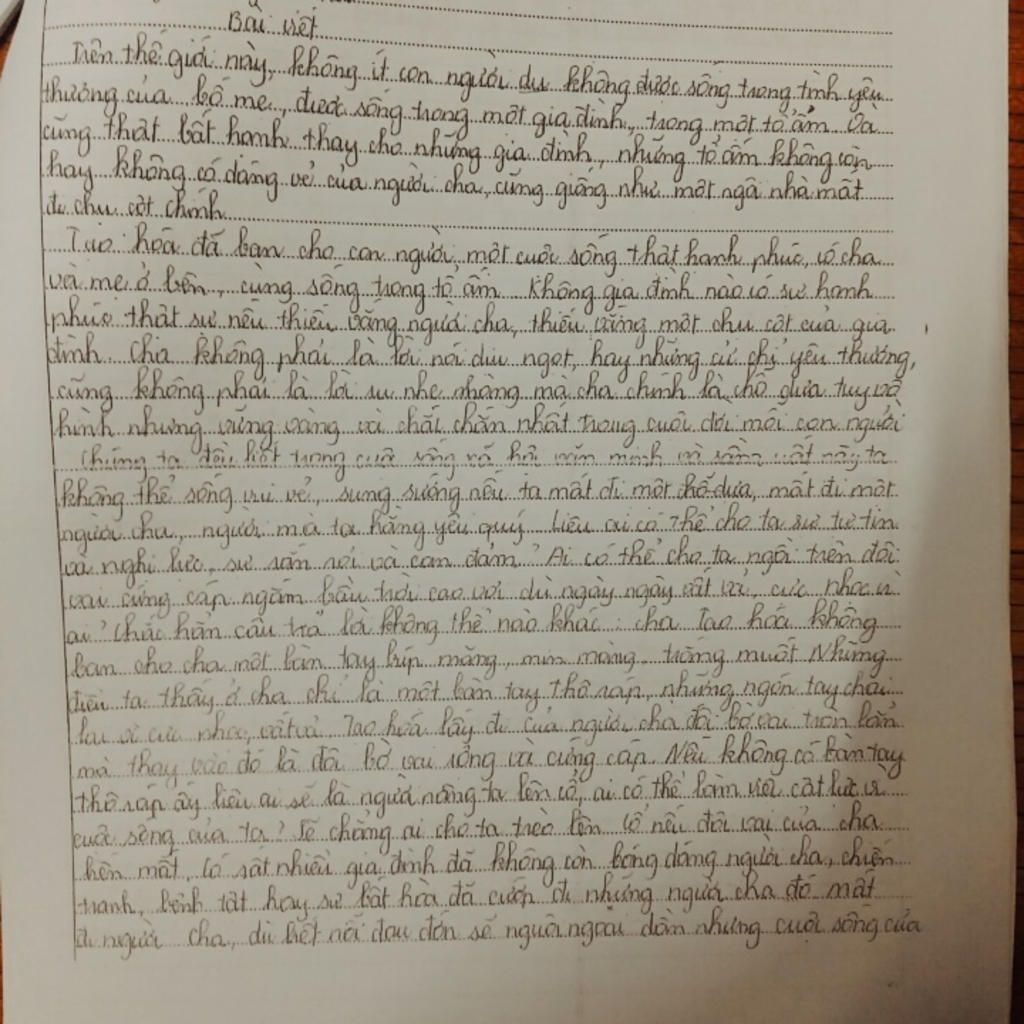 Bài viết
Trên thế giới này, không ít con người dù không được sống trong tình yêu
thương của bố mẹ, được sống trong một gia đình, trong một tổ ấm. Và
cũng thật bất hạnh thay cho những gia đình, những tổ ấm không còn
hay không có dáng vẻ của người cha, cũng giống như một ngôi nhà mất
đi chu cột chính
Tạo hóa đã ban cho con người một cuộc sống thật hạnh phúc, có cha
và mẹ ở bên, cùng sống trong tổ ấm. Không gia đình nào có sự hạnh
phúc thật sự nếu thiếu vắng người cha, thiếu vắng một chu cột của gia
đình. Cha không phải là lời nói dịu ngọt, hay những cử chỉ yêu thương,
cũng không phải là lời ru nhẹ nhàng mà cha chính là chỗ dựa tuy vô
hình nhưng vững vàng và chắc chắn nhất trong cuộc đời mỗi con người
Chúng ta đều biết trong cuộc sống xã hội văn minh và vật này ta
không thể sống vui vẻ, sung sướng nếu ta mất đi một chỗ dựa, mất đi một
người cha, người mà ta hằng yêu quý. Liệu ai có thể cho ta sự tự tin
và nghị lực, sự rắn rỏi và can đảm? Ai có thể cho ta ngồi trên đôi
vai cứng cáp ngắm bầu trời cao vời dù ngày ngày vất vả, cực nhọc vì
ai? Chắc hẳn câu trả lời không thể nào khác: cha. Tạo hóa không
ban cho cha một bàn tay búp măng, mịn màng, trắng muốt. Những
điều ta thấy ở cha chỉ là một bàn tay thô ráp, những ngón tay chai
lại vì cực nhọc, vất vả. Tạo hóa lấy đi của người cha đôi bờ vai tròn lẳn
mà thay vào đó là đôi bờ vai rộng và cứng cáp. Nếu không có bàn tay
thô ráp ấy liệu ai sẽ là người nâng ta lên cổ, ai có thể làm việc cật lực vì
cuộc sống của ta? Sẽ chẳng ai cho ta trèo lên cổ nếu đôi vai của cha
biến mất. Có rất nhiều gia đình đã không còn bóng dáng người cha, chiến
tranh, bệnh tật hay sự bất hòa đã cướp đi những người cha đó mất
đi người cha, dù biết nỗi đau đớn sẽ nguôi ngoai dần nhưng cuộc sống của